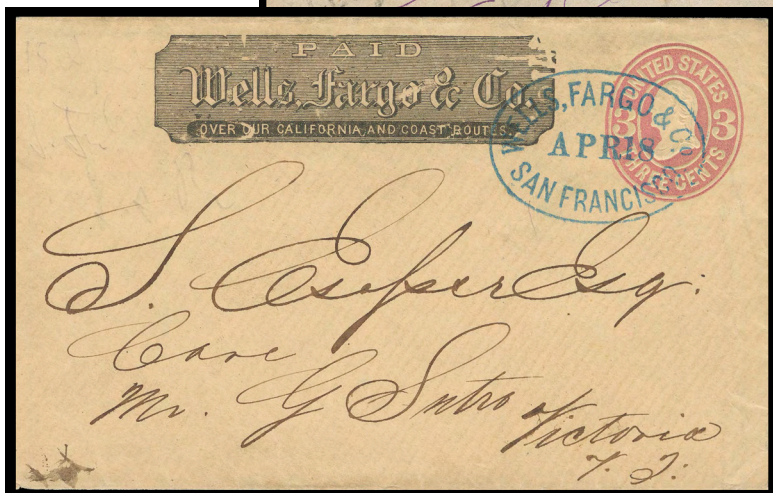 PAID
Wells, Fargo & Co.
OVER OUR CALIFORNIA AND COAST ROUTES.
UNITED STATES
3 3
THREE CENTS
WELLS, FARGO & Co.
APR 18
SAN FRANCISCO
S. Esq:
Care
Mr. G Sutro
Victoria
V. I.